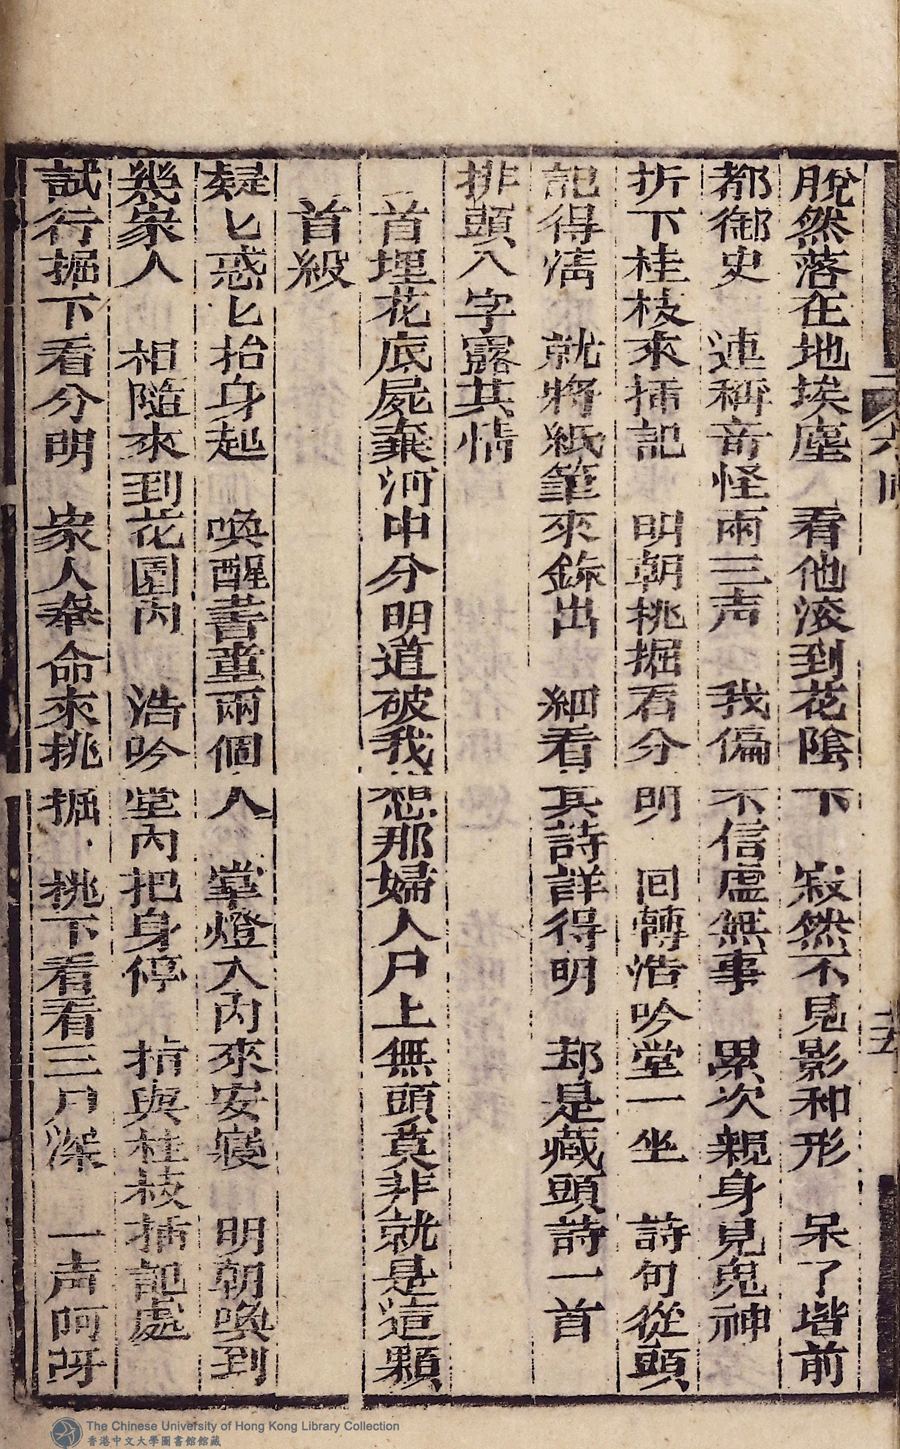 脫然落在地埃塵　看他滾到花陰下　寂然不見影和形　呆了堦前
都御史　連稱奇怪兩三声　我偏不信虛無事　累次親身見鬼神
折下桂枝來揷記　明朝挑掘看分明　回轉浩吟堂一坐　詩句從頭
記得淸　就將紙筆來錄出　細看其詩詳得明　却是藏頭詩一首
排頭八字露其情
首埋花底屍棄河中分明道破我想那婦人尸上無頭莫非就是這顆
首級
疑匕惑匕抬身起　喚醒書童兩個人　掌燈入內來安寢　明朝喚到
幾家人　相隨來到花園內　浩吟堂內把身停　指與桂枝揷記處
試行掘下看分明　家人奉命來挑掘　挑下看看三尸深　一声阿呀
六回
The Chinese University of Hong Kong Library Collection
香港中文大學圖書館館藏